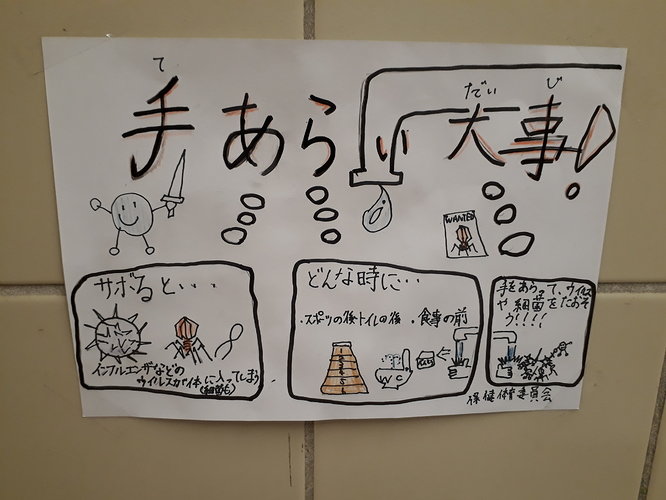 て だい じ
手あらい大事
WANTED
サボると・・・
インフルエンザなどの
ウイルスが体に入ってしまう
(細菌も)
どんな時に・・・
・スポーツの後トイレの後 ・食事の前
1
2
3
4
5
6
WC
手をあらって、ウイルス
や細菌をたおそ
う!!!!
保健体育委員会